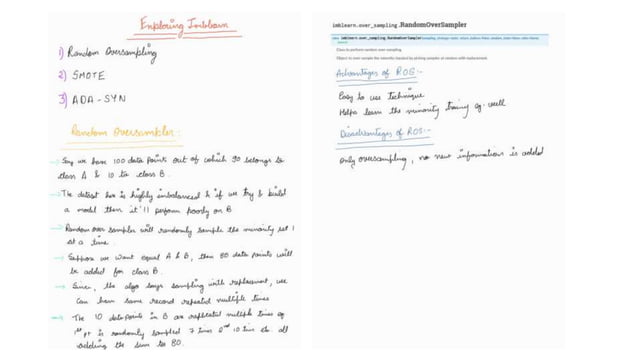 Exploring Imblearn
1) Random Oversampling
2) SMOTE
3) ADA-SYN
Random Oversampler:
→ Say we have 100 data points out of which 90 belongs to
class A & 10 to class B.
→ The dataset here is highly imbalanced & if we try & build
a model then it'll perform poorly on B
→ Random over sampler will randomly sample the minority set 1
at a time.
→ Suppose we want equal A & B, then 80 data points will
be added for class B.
→ Since, the algo says sampling with replacement, we
can have same record repeated multiple times
→ The 10 datapoints in B are replicated multiple times eg
1st pt is randomly sampled 7 times 2nd 10 times etc all
adding the sum to 80.
imblearn.over_sampling.RandomOverSampler
class imblearn.over_sampling.RandomOverSampler
Class to perform random over-sampling.
Object to over-sample the minority class(es) by picking samples at random with replacement.
Advantages of ROS:-
Easy to use technique
Helps learn the minority training eg. well
Disadvantages of ROS:-
Only oversampling, no new information is added